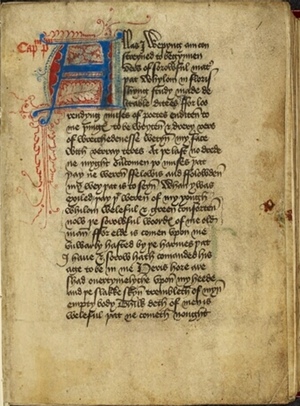 Cap p
Allas I wepyng am con
streyned to begynnen
vers of sorowful mat
þat whylom in floris
shyng study made de
litable ditees ffor loo
rendyng muses of poetes enditen to
me þingꝭ to be wryten & drery vers
of wrecchednesse weten my face
with verray teres At þe lest no drede
ne myght ou'comen þo muses þat
þay ne weren ffelaws and folowiden
my wey þat is to seyn Whan I was
exiled þay þt weren of my yougth
whilom weleful & green conforten
now þe sorowful wordes of me old
man ffor elde is comen upon me
unwarly hasted by þe harmes þat
I haue & sorow hath comanded his
age to be in me Heris hore are
shad ouertymelyche upon my heede
and þe slakke skyn trembleth of myn
empty body Thilk deth of men is
weleful þat ne cometh nought